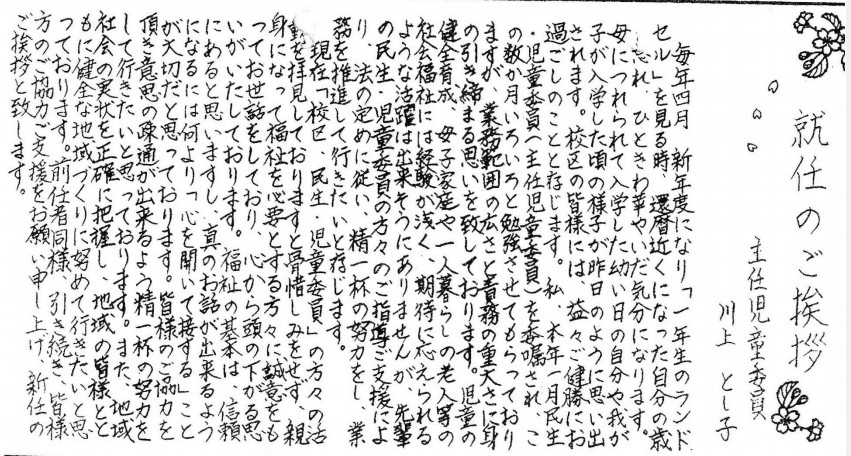 就任のご挨拶
主任児童委員
川上 とし子
毎年四月 新年度になり「一年生のランド
セル」を見る時、還暦近くになった自分の歳
も忘れ、ひときわ華やいだ気分になります。
母につれられて入学した幼い日の自分や我が
子が入学した頃の様子が昨日のように思い出
されます。校区の皆様には、益々ご健勝にお
過ごしのことと存じます。私、本年一月民生
・児童委員(主任児童委員)を委嘱され、こ
の数か月いろいろと勉強させてもらっており
ますが、業務範囲の広さと責務の重大さに身
の引き締まる思いを致しております。児童の
健全育成、母子家庭や一人暮らしの老人等の
社会福祉には経験が浅く、期待に応えられる
ような活躍は出来そうにありませんが、先輩
の民生・児童委員の方々のご指導ご支援によ
り、法の定めに従い、精一杯の努力をし、業
務を推進して行きたいと存じます。
現在「校区、民生・児童委員」の方々の活
動を拝見しておりますと骨惜しみをせず、親
身になって福祉を必要とする方々に誠意をも
ってお世話をしており、心から頭の下がる思
いがいたしております。福祉の基本は、信頼
にあると思いますし、真のお話が出来るよう
になるには何より「心を開いて接する」こと
が大切だと思っております。皆様のご協力を
頂き意思の疎通が出来るよう精一杯の努力を
して行きたいと思っております。また、地域
社会の実状を正確に把握し、地域の皆様とと
もに健全な地域づくりに努めて行きたいと思
っております。前任者同様、引き続き、皆様
方のご協力ご支援をお願い申し上げ、新任の
ご挨拶と致します。